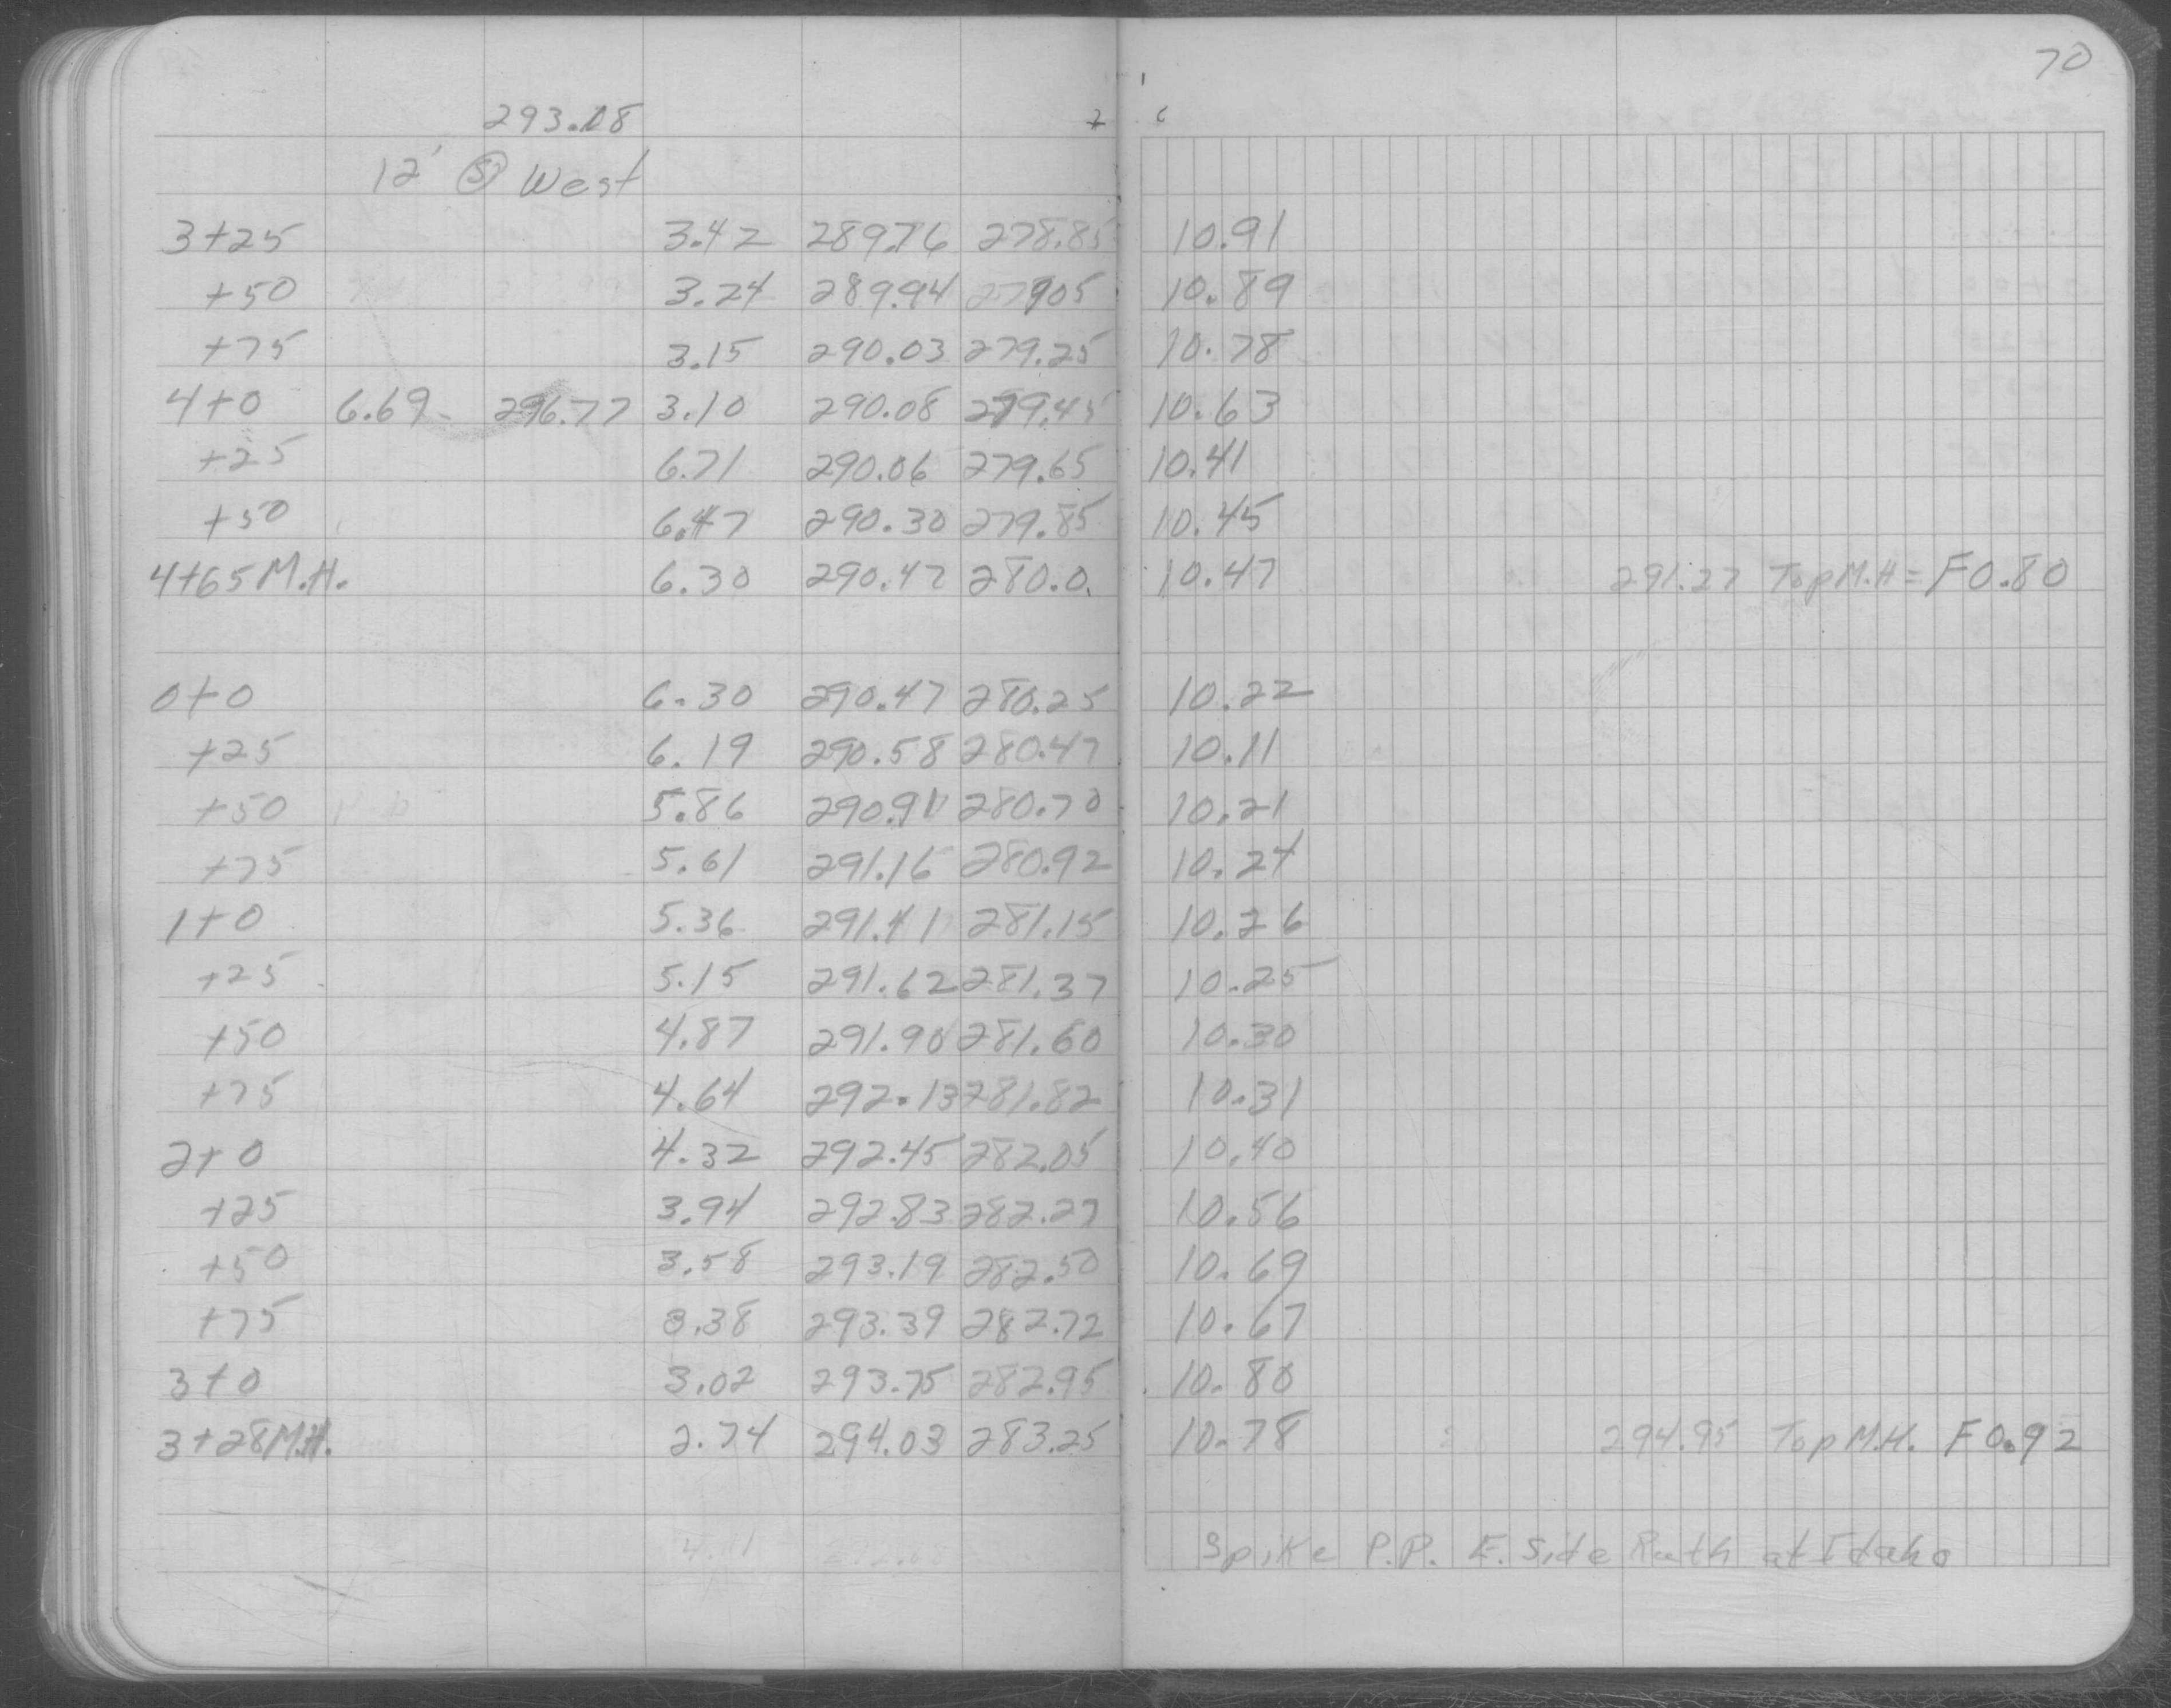 70
293.18
12' Ⓢ West
3+25 3.42 289.76 278.85 10.91
+50 3.24 289.94 279.05 10.89
+75 3.15 290.03 279.25 10.78
4+0 6.69 296.77 3.10 290.08 279.45 10.63
+25 6.71 290.06 279.65 10.41
+50 6.47 290.30 279.85 10.45
4+65 M.H. 6.30 290.47 280.0. 10.47 291.27 Top M.H = F0.80
0+0 6.30 290.47 280.25 10.22
+25 6.19 290.58 280.47 10.11
+50 5.86 290.91 280.70 10.21
+75 5.61 291.16 280.92 10.24
1+0 5.36 291.41 281.15 10.26
+25 5.15 291.62 281.37 10.25
+50 4.87 291.90 281.60 10.30
+75 4.64 292.13 281.82 10.31
2+0 4.32 292.45 282.05 10.40
+25 3.94 292.83 282.27 10.56
+50 3.58 293.19 282.50 10.69
+75 3.38 293.39 282.72 10.67
3+0 3.02 293.75 282.95 10.80
3+28 M.H. 2.74 294.03 283.25 10.78 294.95 Top M.H. F0.92
Spike P.P. E. Side Ruth at Idaho